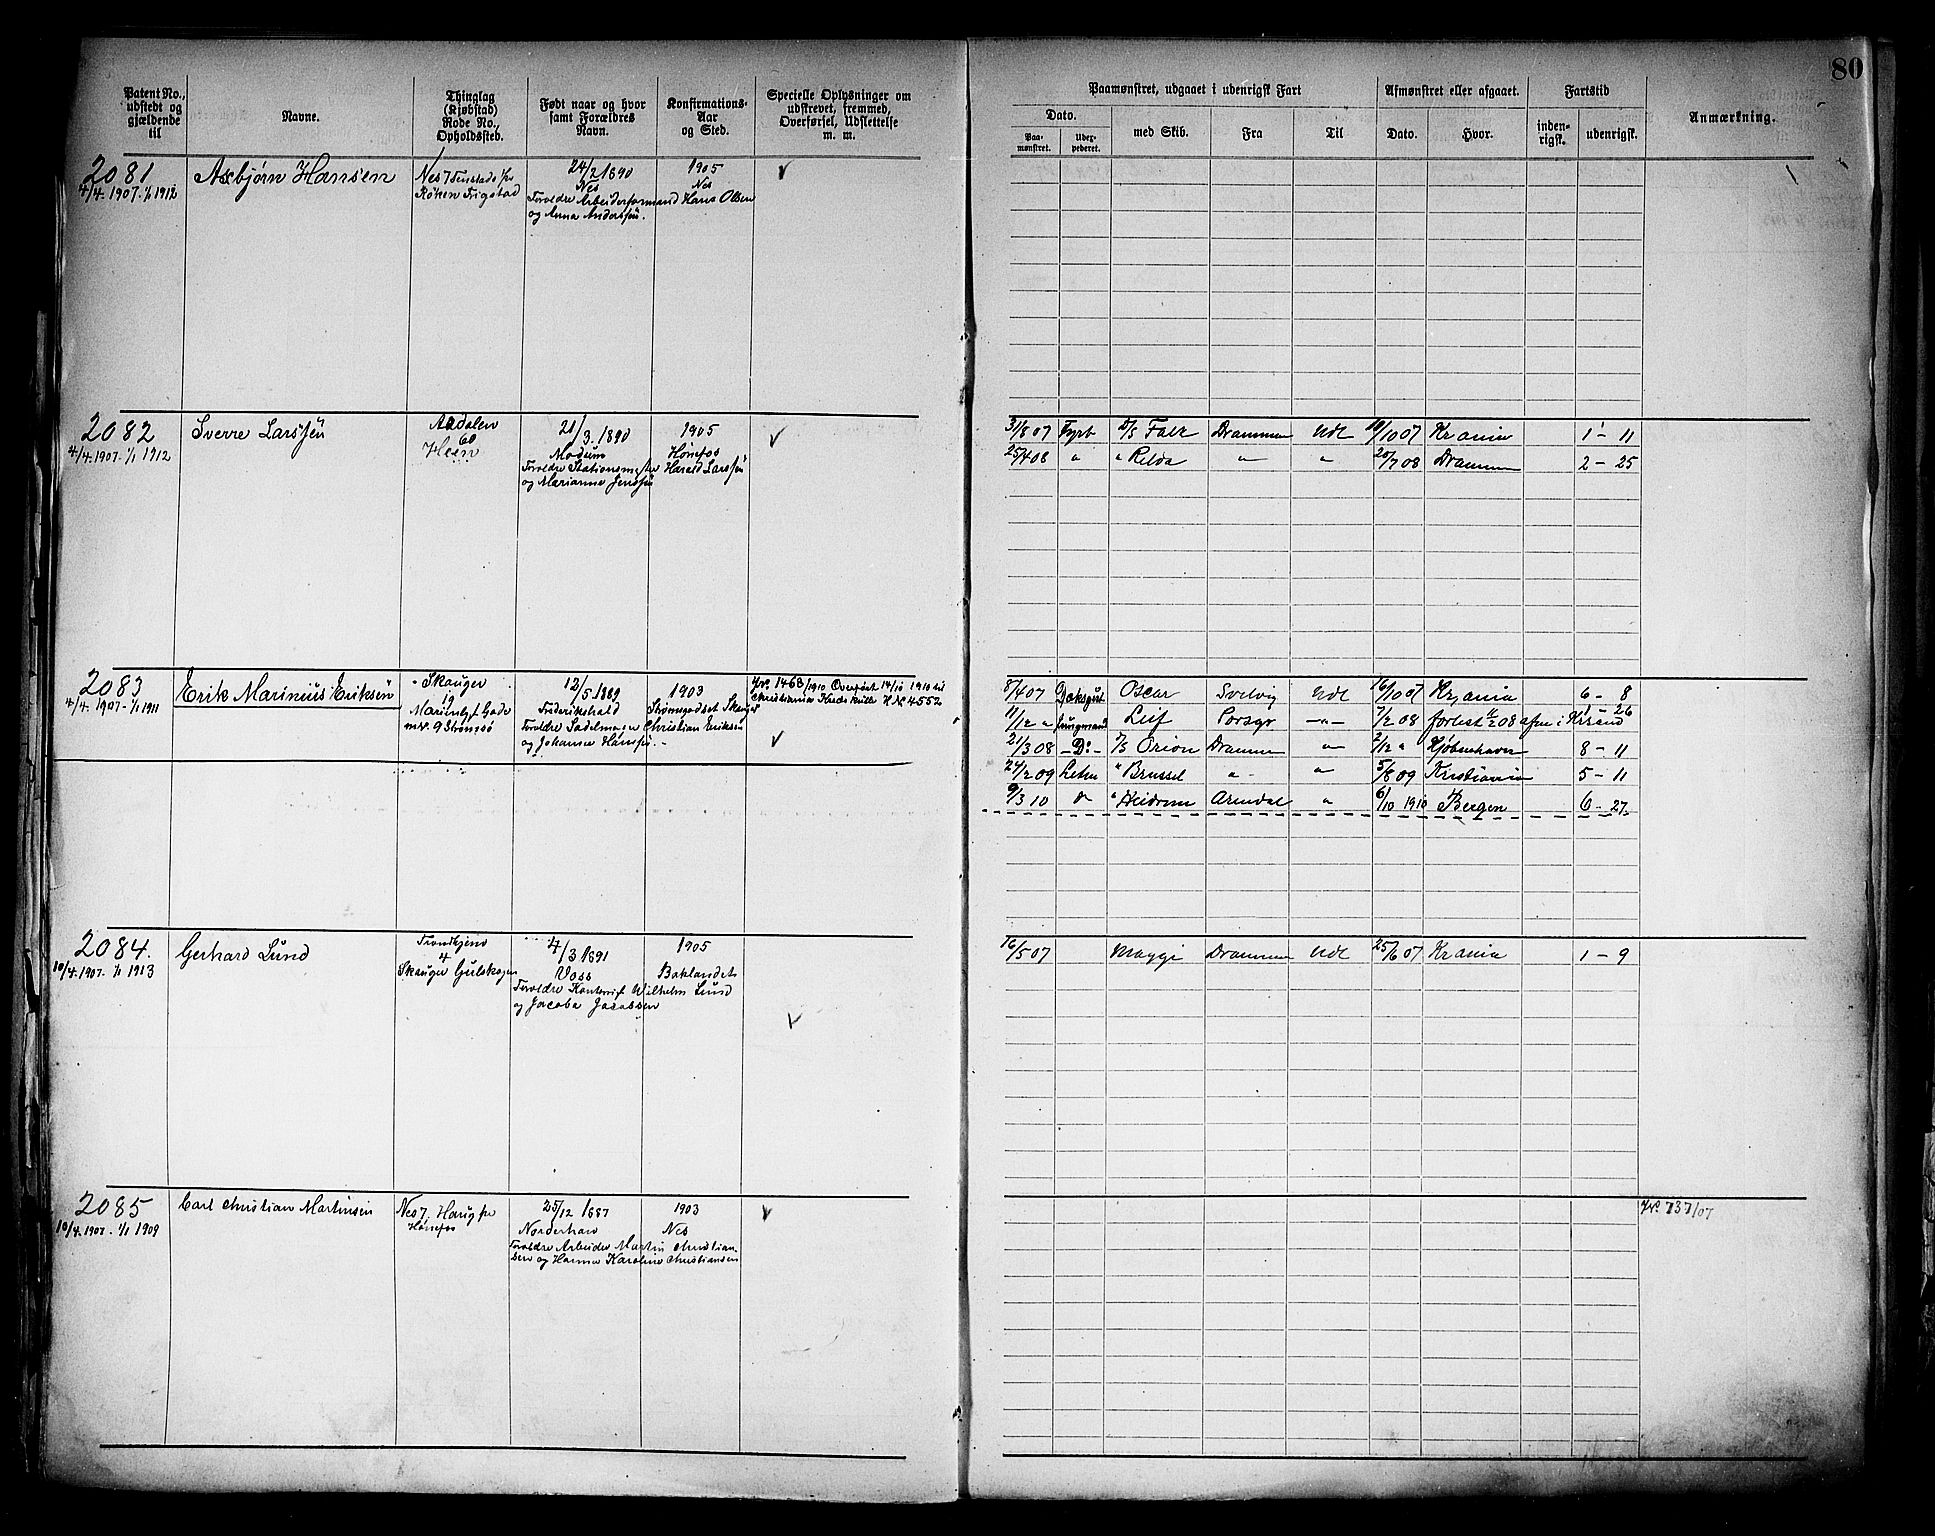 80
Patent No., udstedt og gjældende til
Navne.
Thinglag (Kjøbstad) Rode No., Opholdssted.
Født naar og hvor samt Forældres Navn.
Konfirmations-Aar og Sted.
Specielle Oplysninger om udskrevet, fremmed, Overførsel, Udslettelse m. m.
Paamønstret, udgaaet i udenrigsk Fart
Dato.
Paamønstret.
med Skib.
Fra
Til
Afmønstret eller afgaaet.
Dato.
Hvor.
Fartstid
indenrigsk.
udenrigsk.
Anmærkning.
2081
4/4.1907. 1/1 1912
Asbjørn Hansen
Nes 7
Røken
24/2 1890
Nes
Forældre Arbeidsformand Hans Olsen
og Anna Andersen.
1905
Nes
2082
4/4.1907. 1/1 1912
Sverre Larssen
Aadalen
60
Heen
21/3.1890
Modum
Forældre Stationsmester Harald Larssen
og Marianne Jenssen
1905
Hønefos
31/8 07 Fyrb D/S Falk Drammen Udl 10/10 07 Krania 1 - 11
25/4 08 " " Relda " " 20/7 08 Drammen 2 - 25
2083
4/4.1907. 1/1 1911
Erik Marinius Eriksen
Skauger
19
Marienlyst Gade
m.v. 9 Strømsø
12/5 1889
Frederikshald
Forældre Sadelmager Christian Eriksen
og Johanne Hansen.
1903
Strømsgodset Skauger
Jr. 1463/1910 Overført 14/10 1910 til
Christiania Kreds Rulle H N 4552
8/4 07 Dæksgut Oscar Svelvig Udl 16/10 07 Krania 6 - 8
11/12 " Jungmand Leif Porsgr -"- 7/2 08 forlist 11/2 08 afm i Krsand 1 - 26
21/3 08 - Do - D/S Orion Drammen " 2/12 " Kjøbenhavn 8 - 11
24/2 09 Letm " Brussel " " 5/8 09 Kristiania 5 - 11
9/3 10 " " Heidrun Arendal " 6/10 1910 Bergen 6 - 27
2084.
10/4.1907. 1/1 1913
Gerhard Lund
Trondhjem
4
Skauger Gulskogen
4/3 1891
Voss
Forældre Kontorist Wilhelm Lund
og Jacoba Jacobsen
1905
Baklandet
16/5 07 Maggi Drammen Udl 25/6 07 Krania 1 - 9
2085
10/4.1907. 1/1 1909
Carl Christian Martinsen
Nes 7. Haug pr
Hønefos
25/12 1887
Norderhov
Forældre Arbeider Martin Christian-
sen og Hanna Karoline Christiansen
1903
Nes
Jr. 737/07